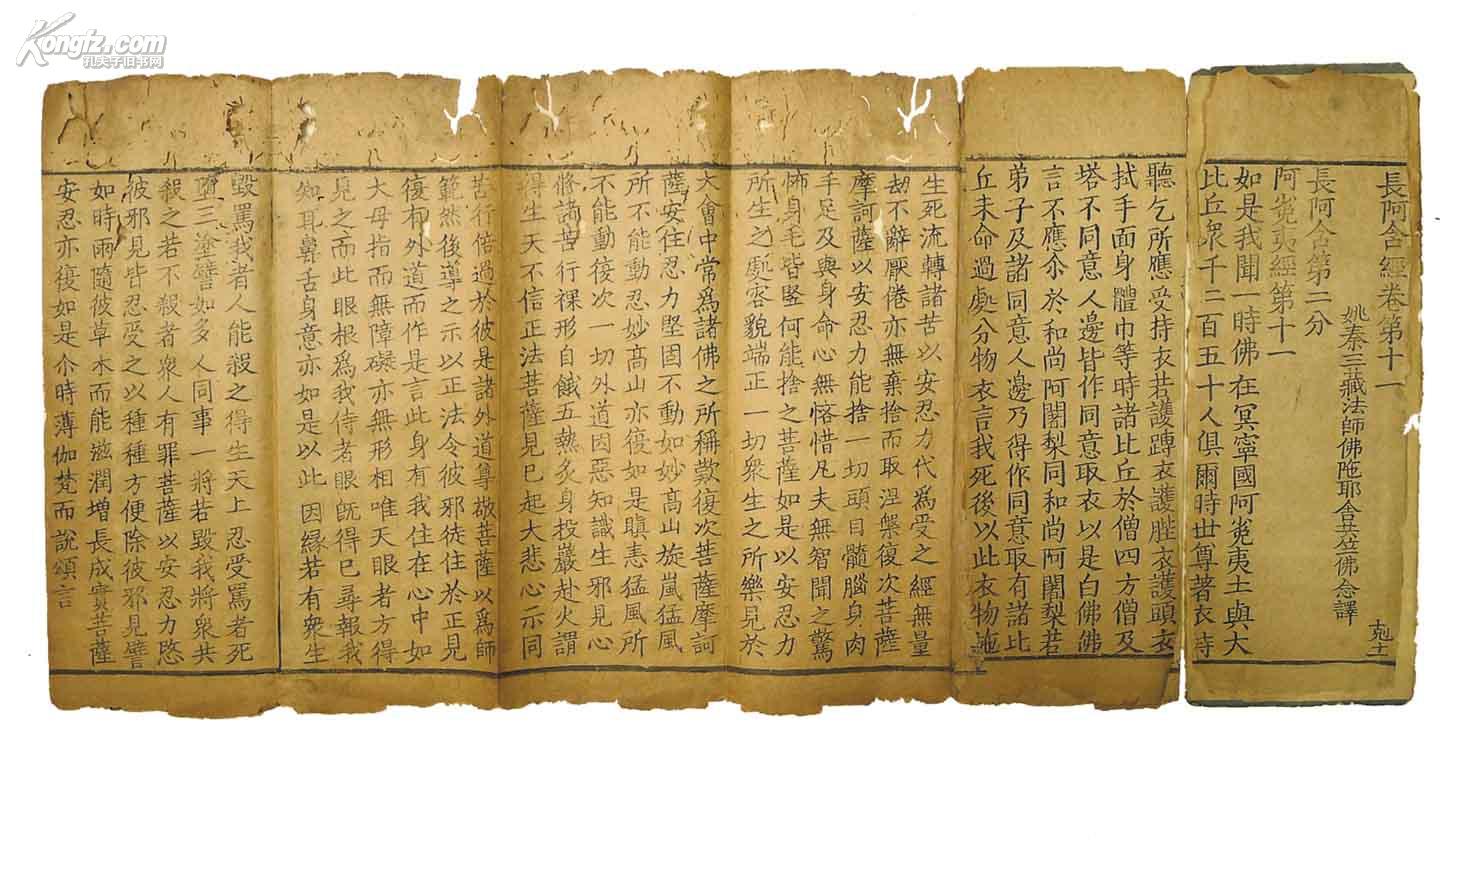 Kongfz.com
孔夫子旧书网
長阿含經卷第十一
姚秦三藏法師佛陁耶舍共竺佛念譯
長阿含第二分
阿㝹夷經第十一
如是我聞一時佛在冥寧國阿㝹夷土與大
比丘衆千二百五十人俱爾時世尊著衣持
聽乞所應受持衣若護蹲衣護䏶衣護頭衣
拭手面身體巾等時諸比丘於僧四方僧及
塔不同意人邊皆作同意取衣以是白佛佛
言不應尒於和尚阿闍梨同和尚阿闍梨若
弟子及諸同意人邊乃得作同意取有諸比
丘未命過處分物衣言我死後以此衣物施
生死流轉諸苦以安忍力代爲受之經無量
劫不辭厭倦亦無棄捨而取涅槃復次菩薩
摩訶薩以安忍力能捨一切頭目髓腦身肉
手足及與身命心無悋惜凡夫無智聞之驚
怖身毛皆竪何能捨之菩薩如是以安忍力
所生之處容貌端正一切衆生之所樂見於
大會中常爲諸佛之所稱歎復次菩薩摩訶
薩安住忍力堅固不動如妙高山旋嵐猛風
所不能動忍妙高山亦復如是瞋恚猛風所
不能動復次一切外道因惡知識生邪見心
修諸苦行裸形自餓五熱炙身投巖赴火謂
得生天不信正法菩薩見已起大悲心示同
苦行倍過於彼是諸外道尊敬菩薩以爲師
範然後導之示以正法令彼邪徒住於正見
復有外道而作是言此身有我住在心中如
大母指而無障礙亦無形相唯天眼者方得
見之而此眼根爲我侍者眼旣得已尋報我
知耳鼻舌身意亦如是以此因緣若有衆生
毀罵我者人能殺之得生天上忍受罵者死
墮三塗譬如多人同事一將若毀我將衆共
殺之若不殺者衆人有罪菩薩以安忍力愍
彼邪見皆忍受之以種種方便除彼邪見譬
如時雨隨彼草木而能滋潤增長成實菩薩
安忍亦復如是尒時薄伽梵而說頌言